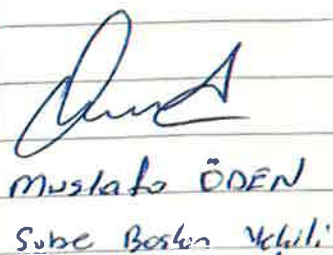 Mustafa ÖDEN
Şube Başkan Vekili